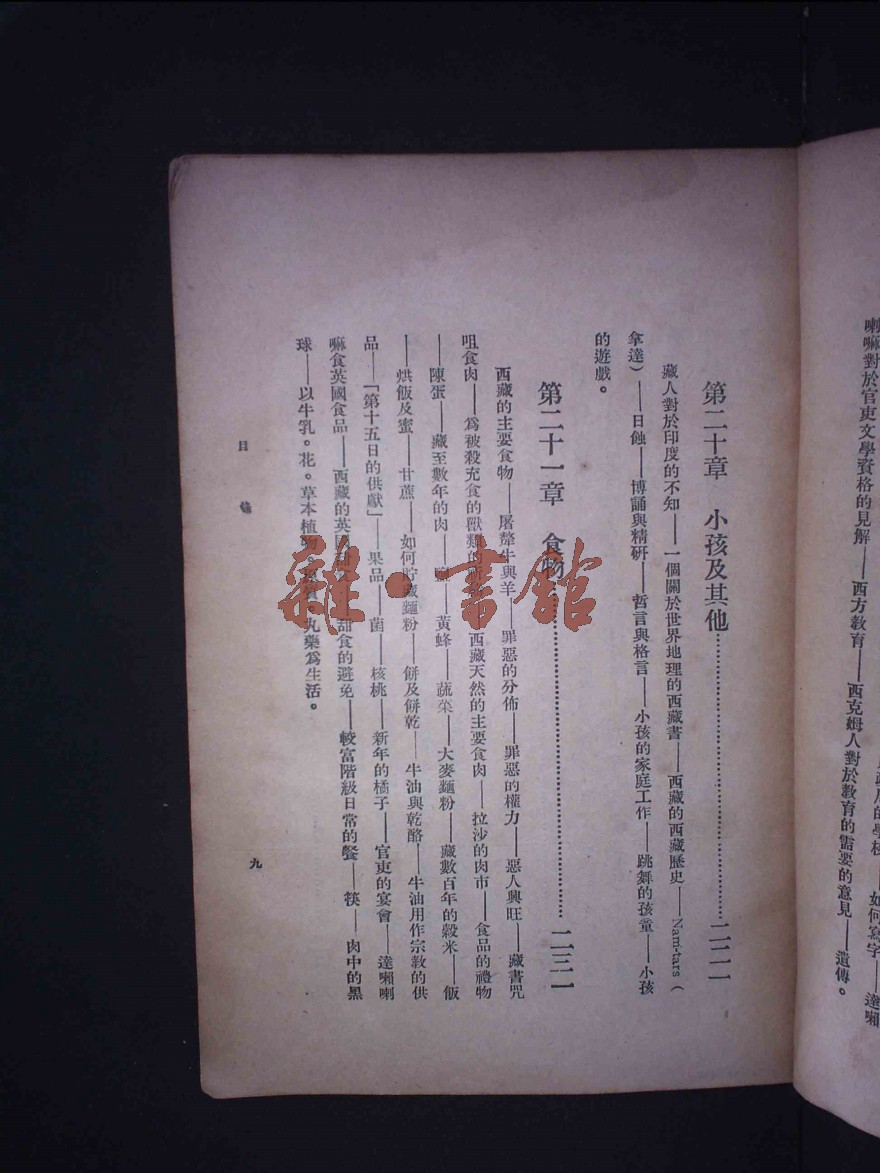 喇嘛對於官吏文學資格的見解——西方教育——西克姆人對於教育的需要的意見——遺傳。
第二十章　小孩及其他……二二一
藏人對於印度的不知——一個關於世界地理的西藏書——西藏的西藏歷史——Nam-tars（
拿達）——日蝕——博誦與精研——哲言與格言——小孩的家庭工作——跳舞的孩童——小孩
的遊戲。
第二十一章　食物……二三一
西藏的主要食物——屠犛牛與羊——罪惡的分佈——罪惡的權力——惡人興旺——藏書咒
咀食肉——爲被殺充食的獸類西藏天然的主要食肉——拉沙的肉市——食品的禮物
——陳蛋——藏至數年的肉——黃蜂——蔬菜——大麥麵粉——藏數百年的穀米——飯
——烘飯及蜜——甘蔗——如何貯藏麵粉——餅及餅乾——牛油與乾酪——牛油用作宗教的供
品——「第十五日的供獻」——果品——菌——核桃——新年的橘子——官吏的宴會——達𡃤喇
嘛食英國食品——西藏的英國甜食的避免——較富階級日常的餐——筷——肉中的黑
球——以牛乳。花。草本植物。丸藥爲生活。
目
九
雜·書館